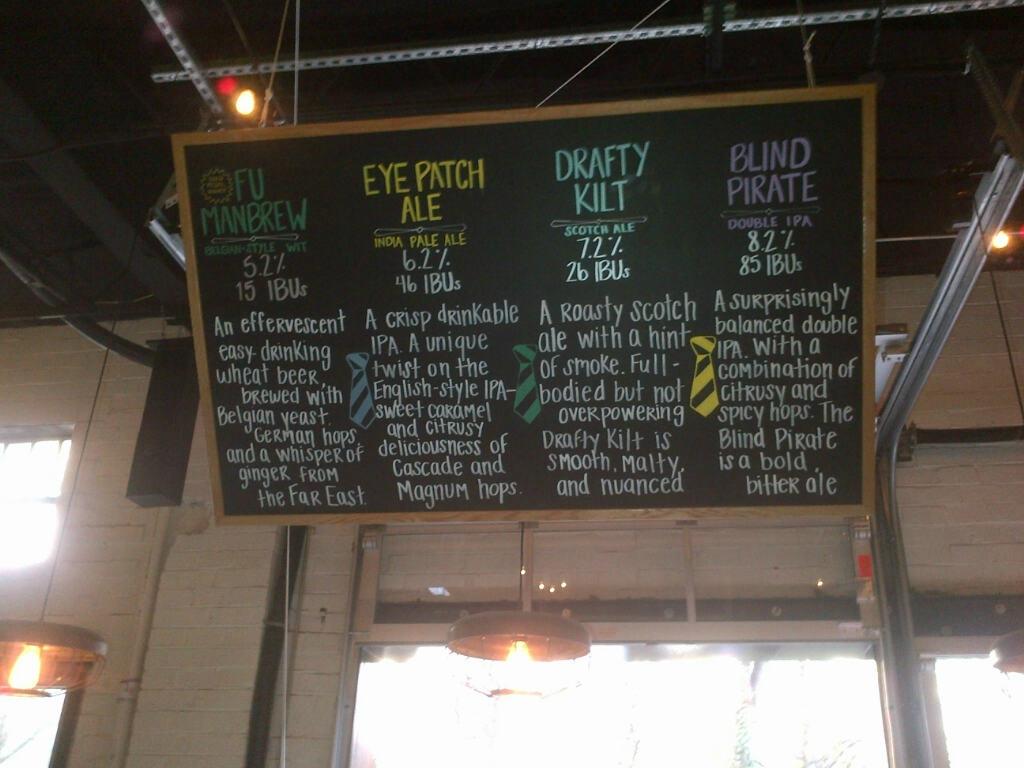 FU
MANBREW
BELGIAN-STYLE WIT
5.2%
15 IBUs
An effervescent
easy-drinking
wheat beer,
brewed with
Belgian yeast,
German hops
and a whisper of
ginger from
the Far East.
EYE PATCH
ALE
INDIA PALE ALE
6.2%
46 IBUs
A crisp drinkable
IPA. A unique
twist on the
English-style IPA-
sweet caramel
and citrusy
deliciousness of
Cascade and
Magnum hops.
DRAFTY
KILT
SCOTCH ALE
7.2%
26 IBUs
A roasty scotch
ale with a hint
of smoke. Full-
bodied but not
overpowering
Drafty Kilt is
smooth, malty,
and nuanced
BLIND
PIRATE
DOUBLE IPA
8.2%
85 IBUs
A surprisingly
balanced double
IPA. With a
combination of
citrusy and
spicy hops. The
Blind Pirate
is a bold,
bitter ale